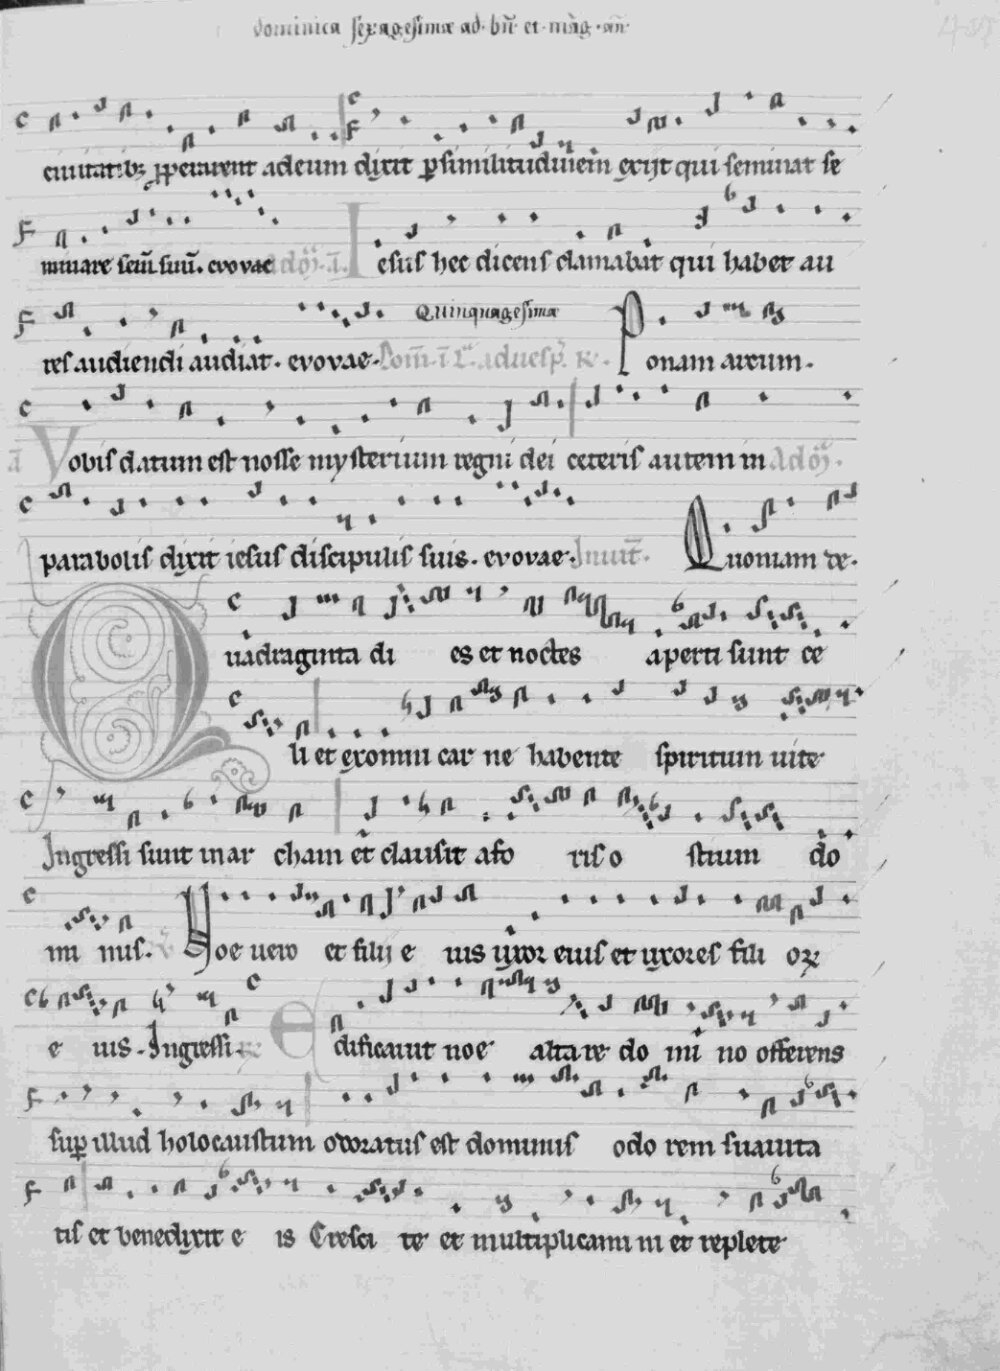 dominica sexagesime ad bn̄ et mag̅ an̄
ciuitatibꝫ ꝓperarent ad eum dixit ꝑ similitudinem exijt qui seminat se
minare sem̅ suu̅. evovae ad oro̅. a̅. Iesus hec dicens clamabat qui habet au
res audiendi audiat. evovae. Quinquagesime Dom̅. i̅ L. ad uesp̅. R. Ponam arcum.
a̅ Vobis datum est nosse mysterium regni dei ceteris autem in Ad oro̅.
parabolis dixit iesus discipulis suis. evovae. Inuit̅. Quoniam de.
Quadraginta di es et noctes aperti sunt ce
li et ex omni car ne habente spiritum uite
Ingressi sunt in ar cham et clausit a fo ris o stium do
mi nus. V̅ Noe uero et filij e ius uxor eius et uxores fili oꝝ
e ius. Ingressi. R Edificauit noe altare do mi no offerens
suꝑ illud holocaustum odoratus est dominus odo rem suauita
tis et benedixit e is Cresci te et multiplicami ni et replete